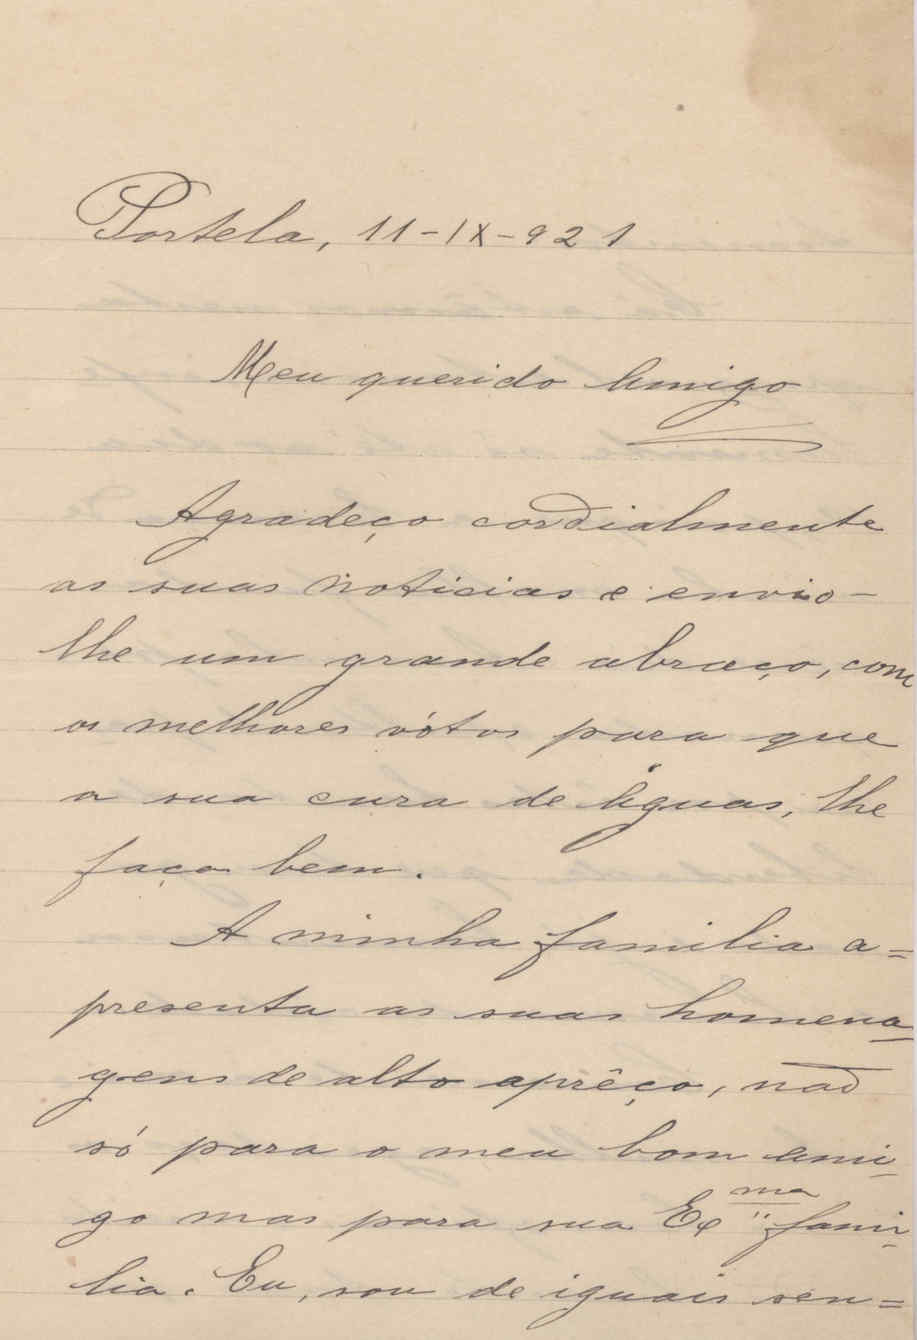 Portela, 11-IX-921
Meu querido Amigo
Agradeço cordialmente
as suas noticias e envio-
lhe um grande abraço, com
os melhores vótos para que
a sua cura de águas, lhe
faça bem.
A minha familia a=
presenta as suas homena-
gens de alto aprêço, não
só para o meu bom ami-
go mas para sua Exma famí-
lia. Eu, sou de iguais sen=